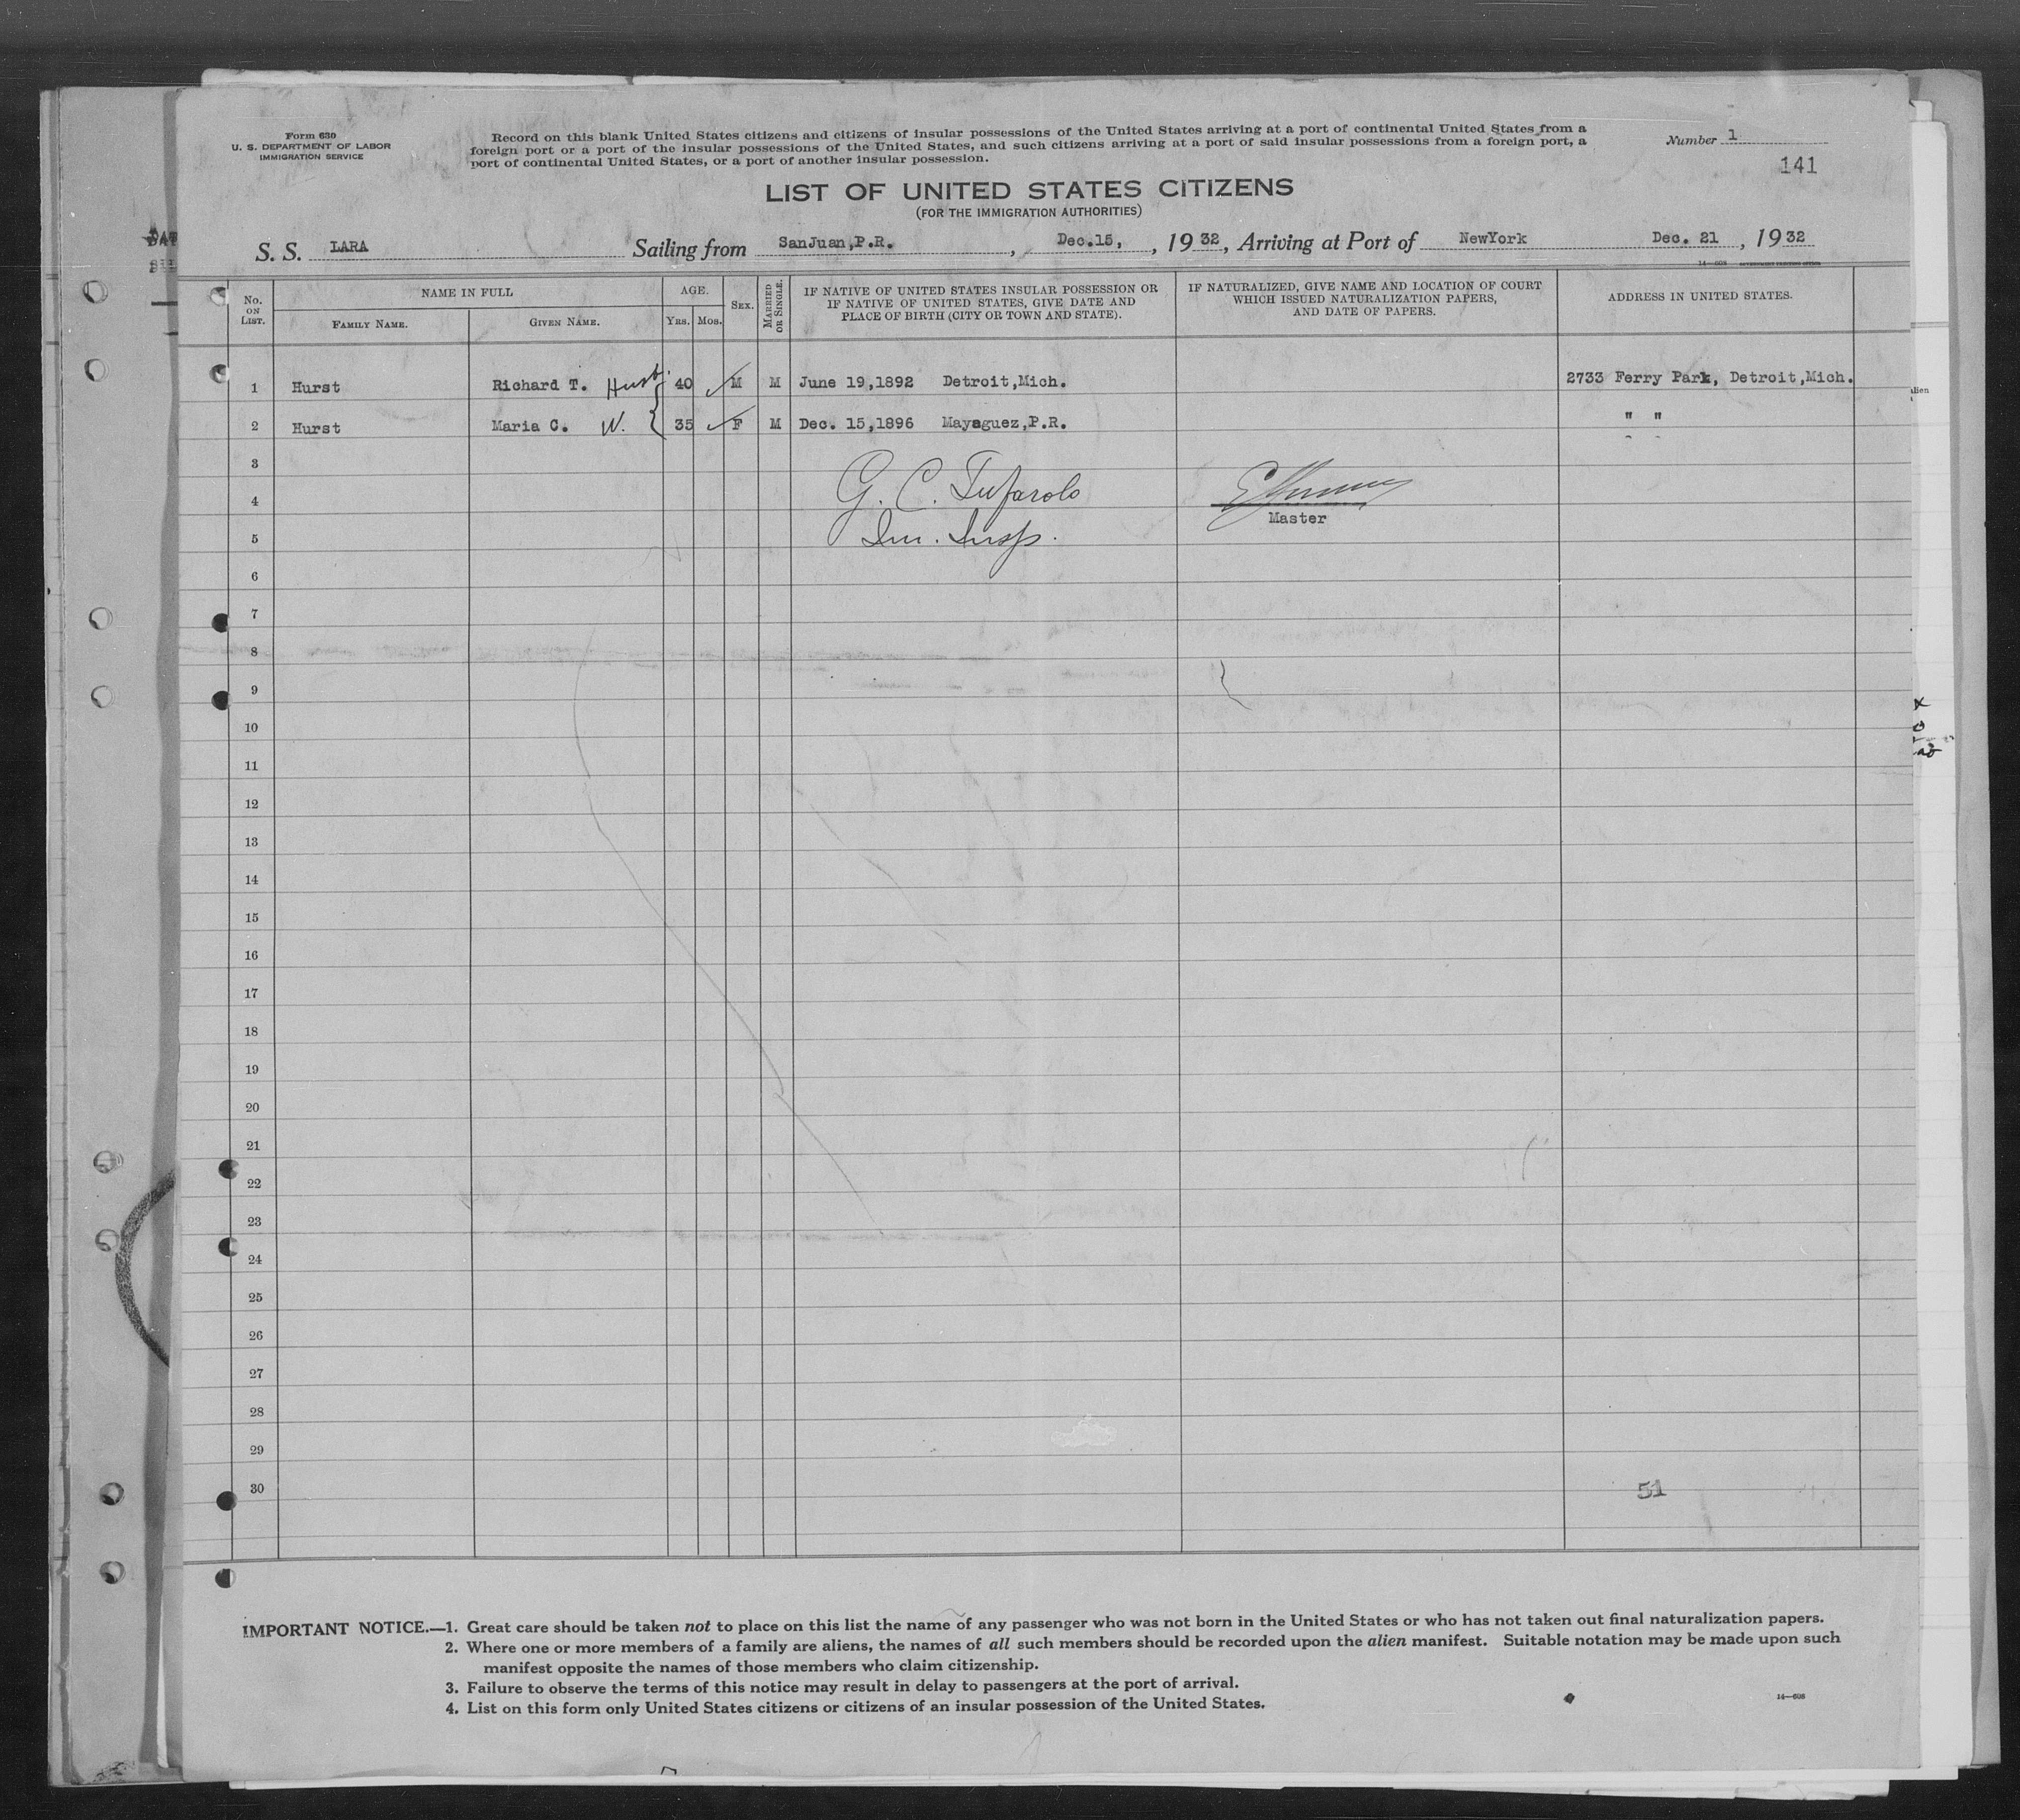 Form 630
U. S. DEPARTMENT OF LABOR
IMMIGRATION SERVICE
Record on this blank United States citizens and citizens of insular possessions of the United States arriving at a port of continental United States from a
foreign port or a port of the insular possessions of the United States, and such citizens arriving at a port of said insular possessions from a foreign port, a
port of continental United States, or a port of another insular possession.
Number 1
141
LIST OF UNITED STATES CITIZENS
(FOR THE IMMIGRATION AUTHORITIES)
S. S. LARA Sailing from SanJuan,P.R. , Dec.15, , 1932, Arriving at Port of NewYork Dec. 21 , 1932
No. ON LIST. NAME IN FULL AGE. SEX. MARRIED OR SINGLE. IF NATIVE OF UNITED STATES INSULAR POSSESSION OR IF NATIVE OF UNITED STATES, GIVE DATE AND PLACE OF BIRTH (CITY OR TOWN AND STATE). IF NATURALIZED, GIVE NAME AND LOCATION OF COURT WHICH ISSUED NATURALIZATION PAPERS, AND DATE OF PAPERS. ADDRESS IN UNITED STATES.
FAMILY NAME. GIVEN NAME. YRS. MOS.
1 Hurst Richard T. Husb. 40 M M June 19,1892 Detroit,Mich. 2733 Ferry Park, Detroit,Mich.
2 Hurst Maria C. W. 35 F M Dec. 15,1896 Mayaguez,P.R. " "
3
4 G. C. Tufarolo
Master
5 Im. Insp.
6
7
8
9
10
11
12
13
14
15
16
17
18
19
20
21
22
23
24
25
26
27
28
29
30
51
IMPORTANT NOTICE.—1. Great care should be taken not to place on this list the name of any passenger who was not born in the United States or who has not taken out final naturalization papers.
2. Where one or more members of a family are aliens, the names of all such members should be recorded upon the alien manifest. Suitable notation may be made upon such
manifest opposite the names of those members who claim citizenship.
3. Failure to observe the terms of this notice may result in delay to passengers at the port of arrival.
4. List on this form only United States citizens or citizens of an insular possession of the United States.
14—608